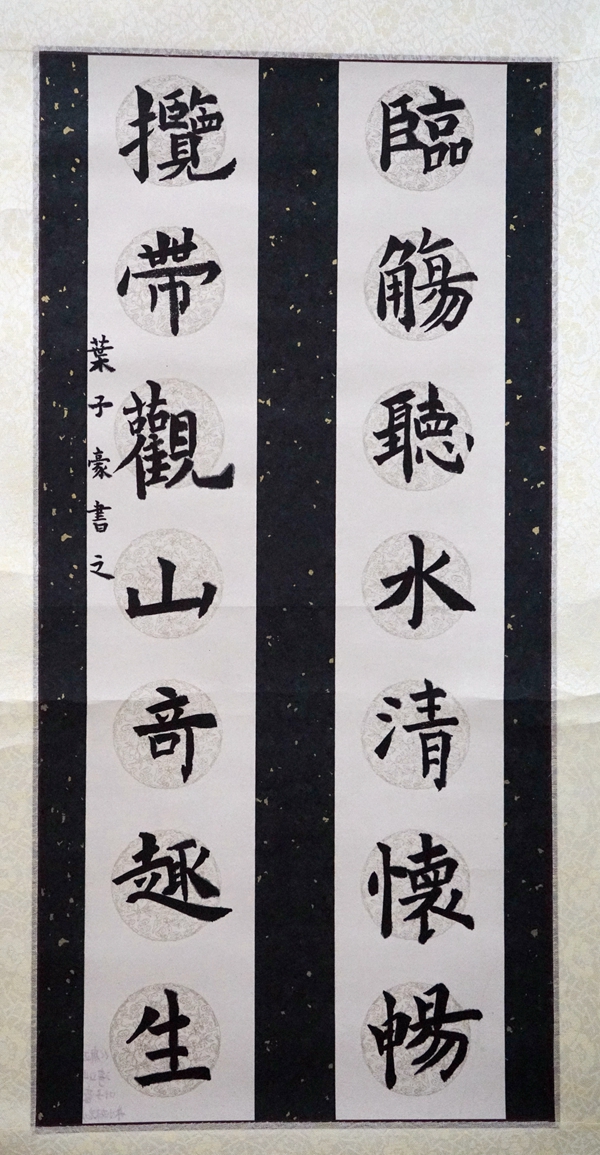 臨觴聽水清懷暢
攬帶觀山竒趣生
葉子豪書之